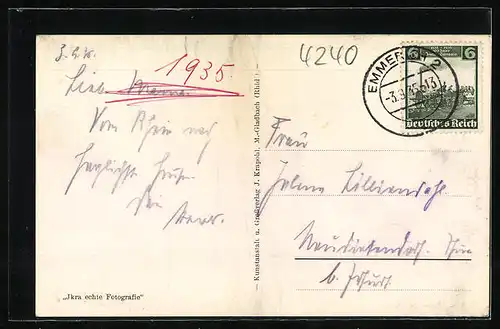 3.9.35.
1935.
Liebe Mama
Vom Rhein nach
herzlichste Grüße
Dein
4240
EMMERICH 2
-3.9.35-13
6 6
Deutsches Reich
Frau
Helma Lilliendahl
Neudietendorf. Thür.
b. Erfurt
Kunstanstalt u. Großverlag J. Krapohl, M.-Gladbach (Rhld.)
„Jkra echte Fotografie"